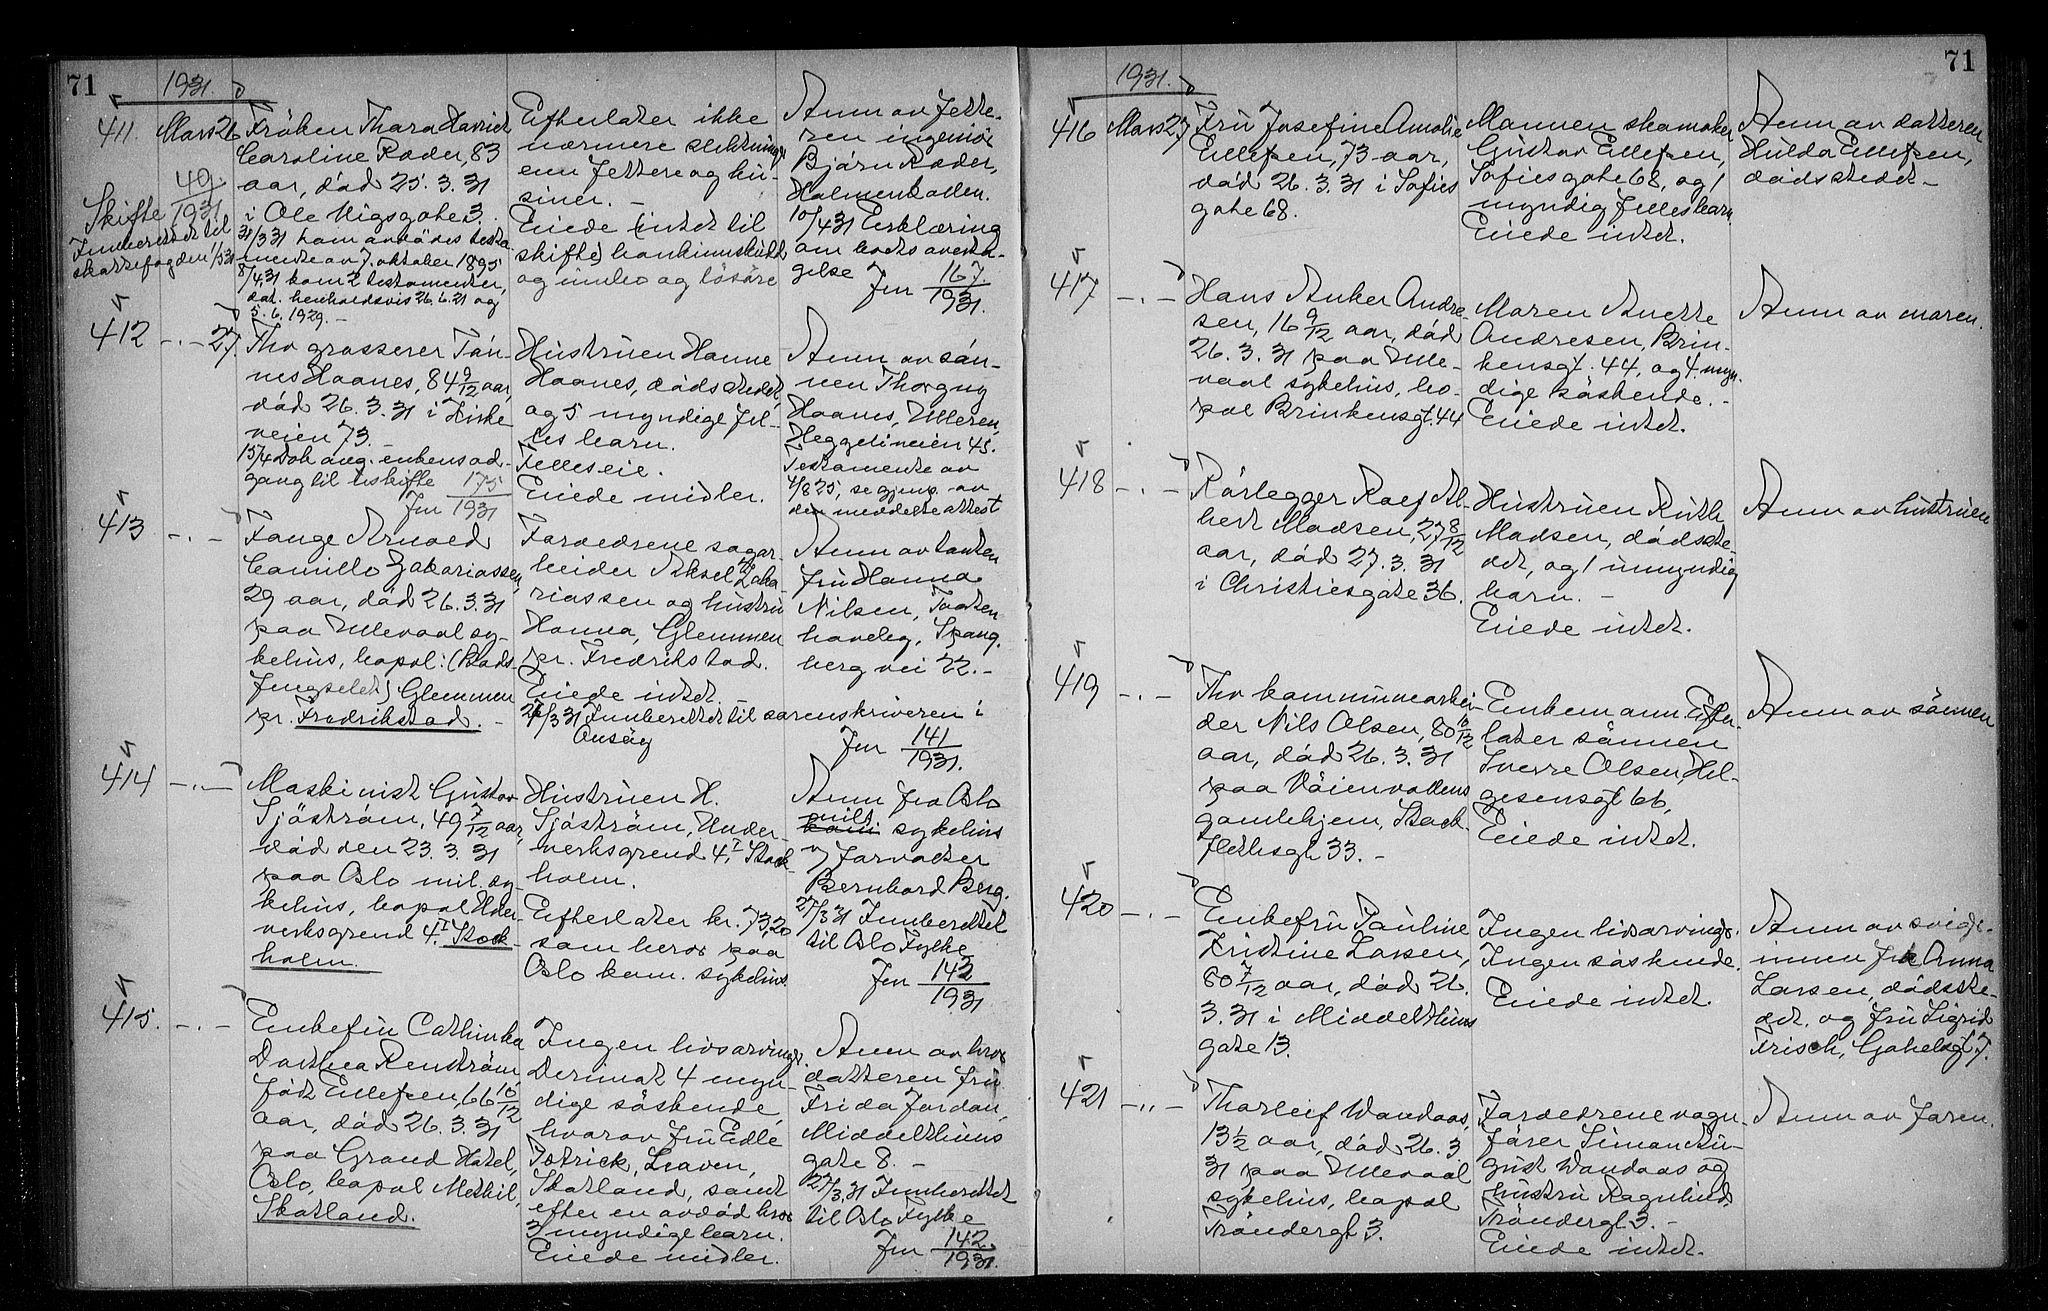 71
1931.
411. Mars 26
49/1931
Skifte
Innberettet til
skattefogden 1/5 31
Frøken Thora Harriet
Caroline Roder, 83
aar, død 25.3.31
i Ole Vigsgate 3.
31/3 31 kom avdødes testa-
mente av 7. oktober 1895
8/4 31 kom 2 testamenter,
dat. henholdsvis 26.6.21 og
5.6.1929. -
Efterlater ikke
nærmere slektninger
enn fettere og ku-
siner. -
Eiede (intet til
skifte)
og innbo og løsøre
Anm av fette-
ren ingeniør
Bjørn Roder,
Holmenkollen.
10/4 31 Erklæring
om bodets overta-
gelse
Jnr 167/1931.
412 -.- 27.
Fhv grosserer Tøn-
nes Haanes, 84 9/12 aar,
død 26.3.31 i Kirke
veien 73. -
15/4 Dok ang. enkens ad-
gang til uskifte
Jnr 175/1931
Hustruen Hanne
Haanes, dødsstedet,
og 5 myndige fel-
les barn.
Felleseie.
Eiede midler.
Anm av søn-
nen Thorgny
Haanes, Ulleren,
Heggeliveien 45.
Testamente av
4/8 25, se gjenp. av
den meddelte attest
413 -.-
Fange Arnold
Camillo Zakariassen,
29 aar, død 26.3.31
paa Ullevaal sy-
kehus, bopæl: (Bods-
fengselet) Glemmen
pr. Fredrikstad. -
Forældrene sagar-
beider Aksel Zaka-
riassen og hustru
Hanna, Glemmen
pr. Fredrikstad.
Eiede intet. -
27/3 31 Innberettet til sorenskriveren i
Onsøy
Anm av tanten
fru Hanna
Nilsen, Tveten
haveby, Spang-
berg vei 22. -
Jnr 141/1931.
414 -.-
Maskinist Gustav
Sjøstrøm, 49 7/12 aar,
død den 23.3.31
paa Oslo mil. sy-
kehus, bopæl Under-
verksgrend 4 I Stock-
holm.
Hustruen H.
Sjøstrøm, Under-
verksgrend 4 I Stock-
holm.
Efterlater kr. 73,20
som beror paa
Oslo kom. sykehus.
Anm fra Oslo
mil. sykehus
v/ forvalter
Bernhard Berg.
27/3 31 Innberettet
til Oslo Fylke
Jnr 142/1931
415. -.-
Enkefru Cathinka
Dorthea Renstrøm,
født Ellefsen, 66 10/12
aar, død 26.3.31
paa Grand Hotel,
Oslo, bopæl Methil,
Skotland.
Ingen livsarvinger.
Derimot 4 myn-
dige søskende,
hvorav fru Edle
Patrick, Leaven,
Skotland, samt
efter en avdød bror
3 myndige barn.
Eiede midler.
Anm av bror
datteren fru
Frida Jordan,
Middelthuns
gate 8. -
27/3 31 Innberettet
til Oslo Fylke
Jnr 142./1931.
71
1931.
416 Mars 27.
Fru Josefine Amalie
Ellefsen, 73 aar,
død 26.3.31 i Sofies
gate 68.
Mannen skomaker
Gustav Ellefsen,
Sofiesgate 68, og 1
myndig fellesbarn.
Eiede intet.
Anm av datteren
Hulda Ellefsen,
dødsstedet -
417 -.-
Hans Anker Andre-
sen, 16 9/12 aar, død
26.3.31 paa Ulle-
vaal sykehus, bo-
pæl Brinkensgt. 44
Moren Anette
Andresen, Brin-
kensgt. 44, og 4 myn-
dige søskende. -
Eiede intet.
Anm av moren.
418 -.-
Rørlegger Rolf Al-
bert Madsen, 27 8/12
aar, død 27.3.31
i Christiesgate 36.
Hustruen Ruth
Madsen, dødsste-
det, og 1 umyndig
barn. -
Eiede intet.
Anm av hustruen
419 -.-
Fhv kommunearbei-
der Nils Olsen, 80 10/12
aar, død 26.3.31
paa Vøienvoldens
gamlehjem, Stock-
flethsgt 33. -
Enkemann. Efter-
later sønnen
Sverre Olsen, Hel-
gesensgt 66,
Eiede intet.
Anm av sønnen
420 -.-
Enkefru Pauline
Kristine Larsen,
80 7/12 aar, død 26.
3.31 i Middelthuns
gate 13.
Ingen livsarvinger.
Ingen søskende.
Eiede intet.
Anm av svige-
innen frk Anna
Larsen, dødsste-
det, og fru Sigrid
Frisch, Gabelsgt 7.
421 -.-
Thorleif Wandaas,
13 1/2 aar, død 26.3.
31 paa Ullevaal
sykehus, bopæl
Trøndergt 3.
Forældrene vogn-
fører Simon Au-
gust Wandaas og
hustru Ragnhild,
Trøndergt 3. -
Eiede intet.
Anm av faren.